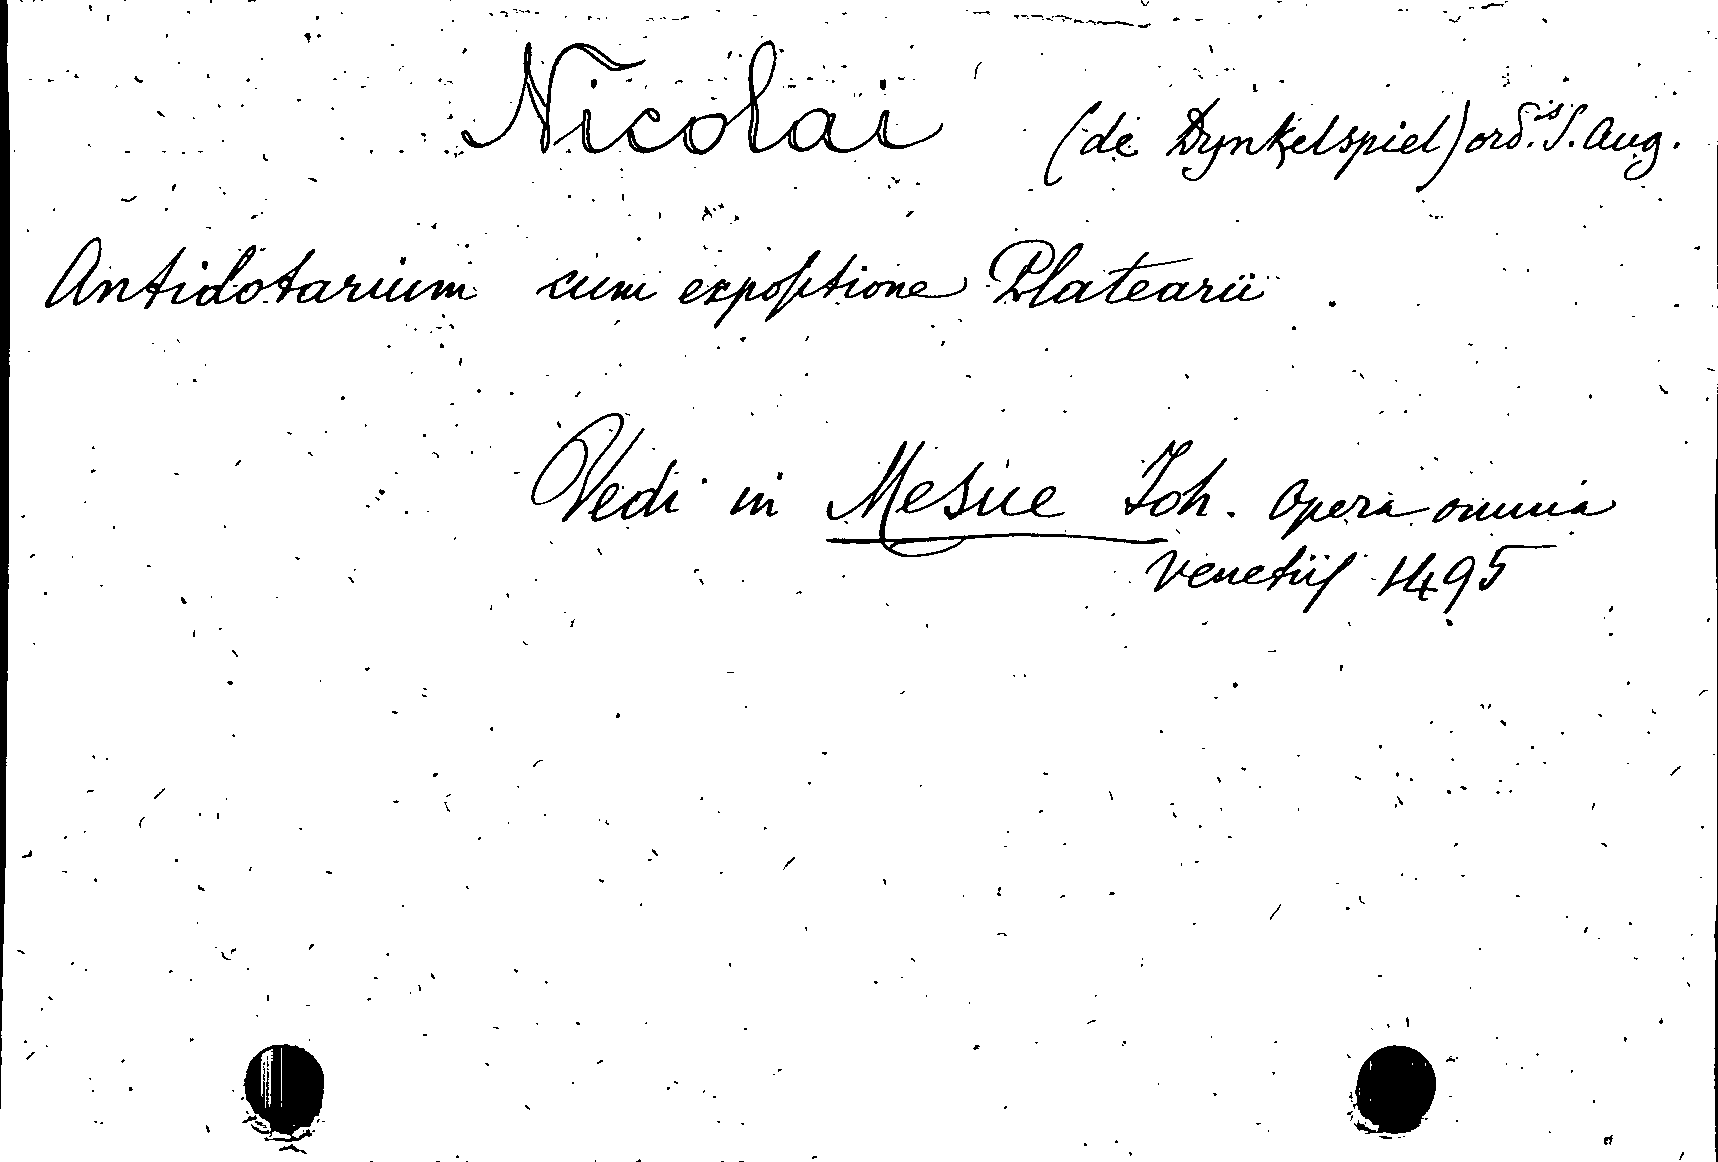 Nicolai (de Dynkelspiel) ord.s S. Aug.
Antidotarium cum expositione Platearii.
Vedi in Mesue Joh. Opera omnia
Venetiis 1495